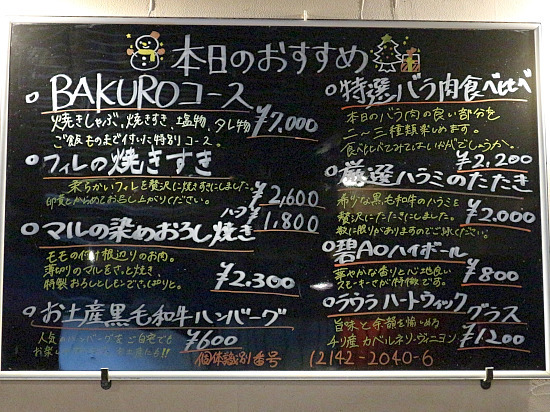 本日のおすすめ
BAKUROコース
焼きしゃぶ、焼きすき、塩物、タレ物、
ご飯ものまで付いた特別コース。
¥7,000
フィレの焼きすき
柔らかいフィレを贅沢に焼きすきにしました。
卵黄とからめてお召し上がりください。
¥2,600
ハーフ ¥1,800
マルの染めおろし焼き
モモの付け根辺りのお肉。
薄切りのマルをさっと焼き、
特製おろしとレモンでさっぱりと。
¥2,300
お土産黒毛和牛ハンバーグ
人気の ハンバーグを ご自宅でも
お楽しみ
¥600
特選バラ肉食べ比べ
本日のバラ肉の良い部分を
二〜三種類楽しめます。
食べ比べてみてはいかがでしょうか。
¥2,200
厳選ハラミのたたき
希少な黒毛和牛のハラミを
贅沢にたたきにしました。
数に限りがありますのでご了承ください。
¥2,000
碧Aoハイボール
華やかな香りと心地良い
スモーキーさが特徴です。
¥800
ラウラ ハートウィック グラス
旨味と余韻を愉しめる
チリ産 カベルネ・ソーヴィニヨン
¥1,200
個体識別番号 12142-2040-6